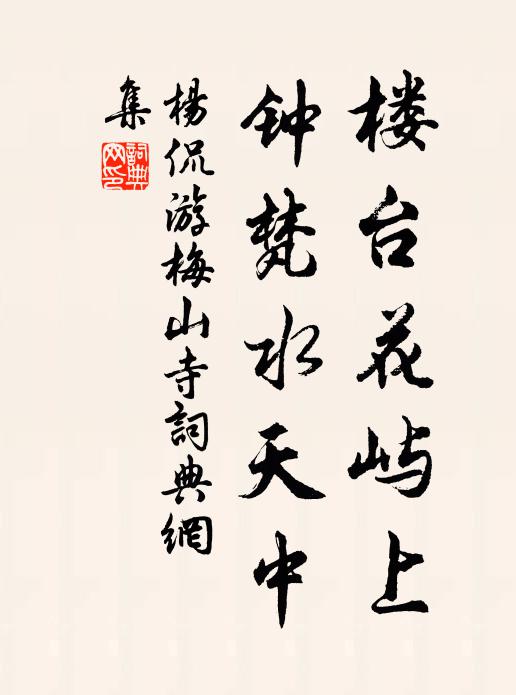 楼台花屿上
钟梵水天中
杨侃游梅山寺詞典網
集
詞典網